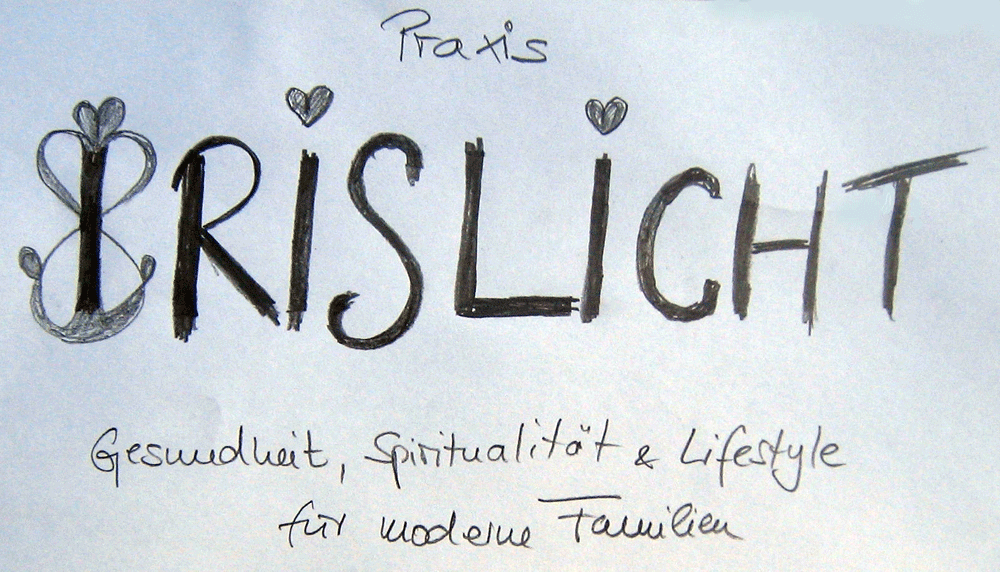 Praxis
IRiSLiCHT
Gesundheit, Spiritualität & Lifestyle
für moderne Familien